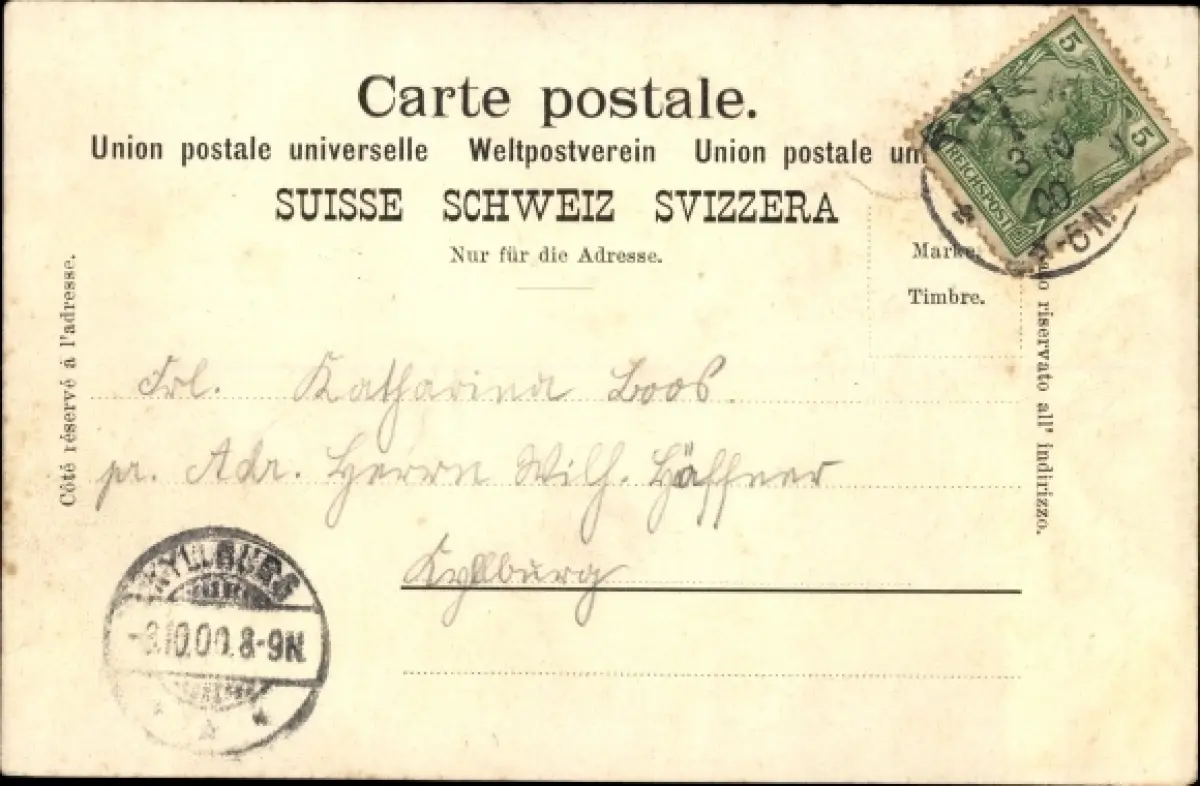 Carte postale.
Union postale universelle Weltpostverein Union postale un
SUISSE SCHWEIZ SVIZZERA
Nur für die Adresse.
Marke.
Timbre.
Côté réservé à l'adresse.
riservato all' indirizzo.
5
5
REICHSPOST
3
00
-5N.
Frl. Katharina Boos.
pr. Adr. Herrn Wilh. Häffner
Kyllburg
KYLLBURG
10.00. 8-9N.